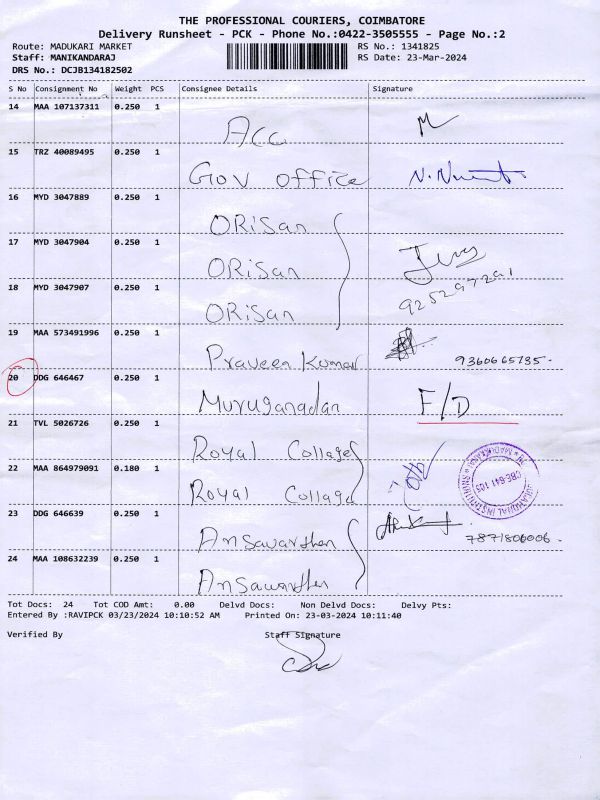 THE PROFESSIONAL COURIERS, COIMBATORE
Delivery Runsheet - PCK - Phone No.:0422-3505555 - Page No.:2
Route: MADUKARI MARKET RS No.: 1341825
Staff: MANIKANDARAJ RS Date: 23-Mar-2024
DRS No.: DCJB134182502
S No Consignment No Weight PCS Consignee Details Signature
14 MAA 107137311 0.250 1
Acc
15 TRZ 40089495 0.250 1
Gov office
16 MYD 3047889 0.250 1
ORiSan
17 MYD 3047904 0.250 1
ORiSan
18 MYD 3047907 0.250 1
ORiSan
19 MAA 573491996 0.250 1
Praveen Kumar 9360665735.
20 DDG 646467 0.250 1
Murugangdan F/D
21 TVL 5026726 0.250 1
Royal College
22 MAA 864979091 0.180 1
Royal College
23 DDG 646639 0.250 1
Ansavarthen 7871806006.
24 MAA 108632239 0.250 1
Ansavarthen
Tot Docs: 24 Tot COD Amt: 0.00 Delvd Docs: Non Delvd Docs: Delvy Pts:
Entered By :RAVIPCK 03/23/2024 10:10:52 AM Printed On: 23-03-2024 10:11:40
Verified By Staff Signature